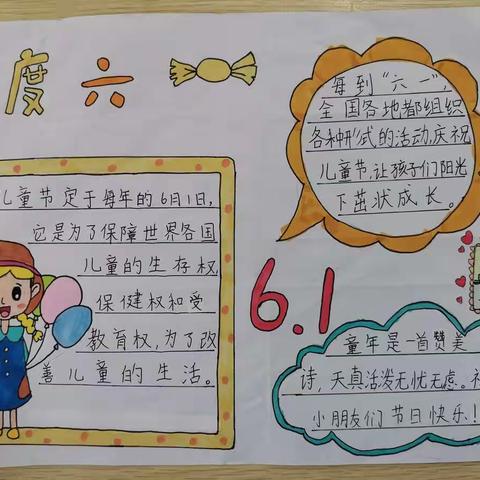 度六
每到“六一”,
全国各地都组织
各种形式的活动,庆祝
儿童节,让孩子们阳光
下茁状成长。
儿童节定于每年的6月1日,
它是为了保障世界各国
儿童的生存权
保健权和受
教育权,为了改
善儿童的生活。
6.1
童年是一首赞美
诗,天真活泼无忧无虑。
小朋友们节日快乐!